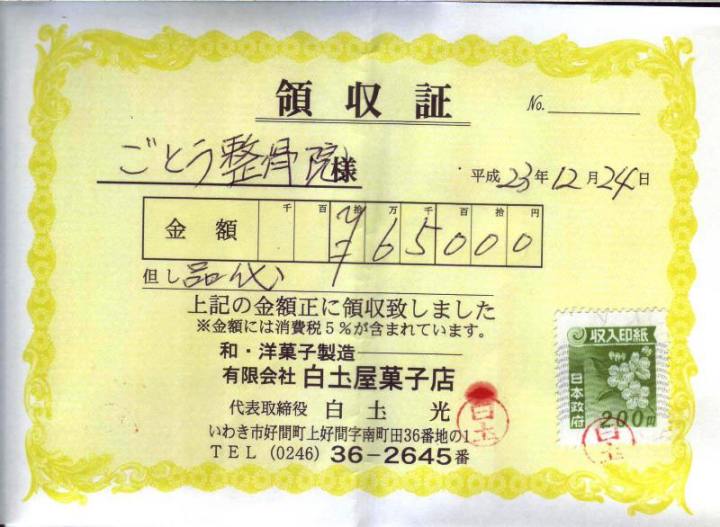 領収証
No.
ごとう整骨院様
平成23年12月24日
千 百 拾 万 千 百 拾 円
金額 ¥65000
但し品代
上記の金額正に領収致しました
※金額には消費税5%が含まれています。
和・洋菓子製造
有限会社 白土屋菓子店
代表取締役 白土 光
いわき市好間町上好間字南町田36番地の1
TEL (0246) 36-2645番
白土
収入印紙
日本政府
200円
白土